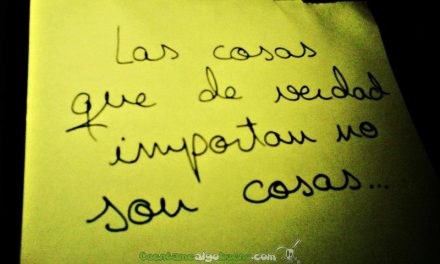 Las cosas
que de verdad
importan no
son cosas...
Cuentamealgobueno.com